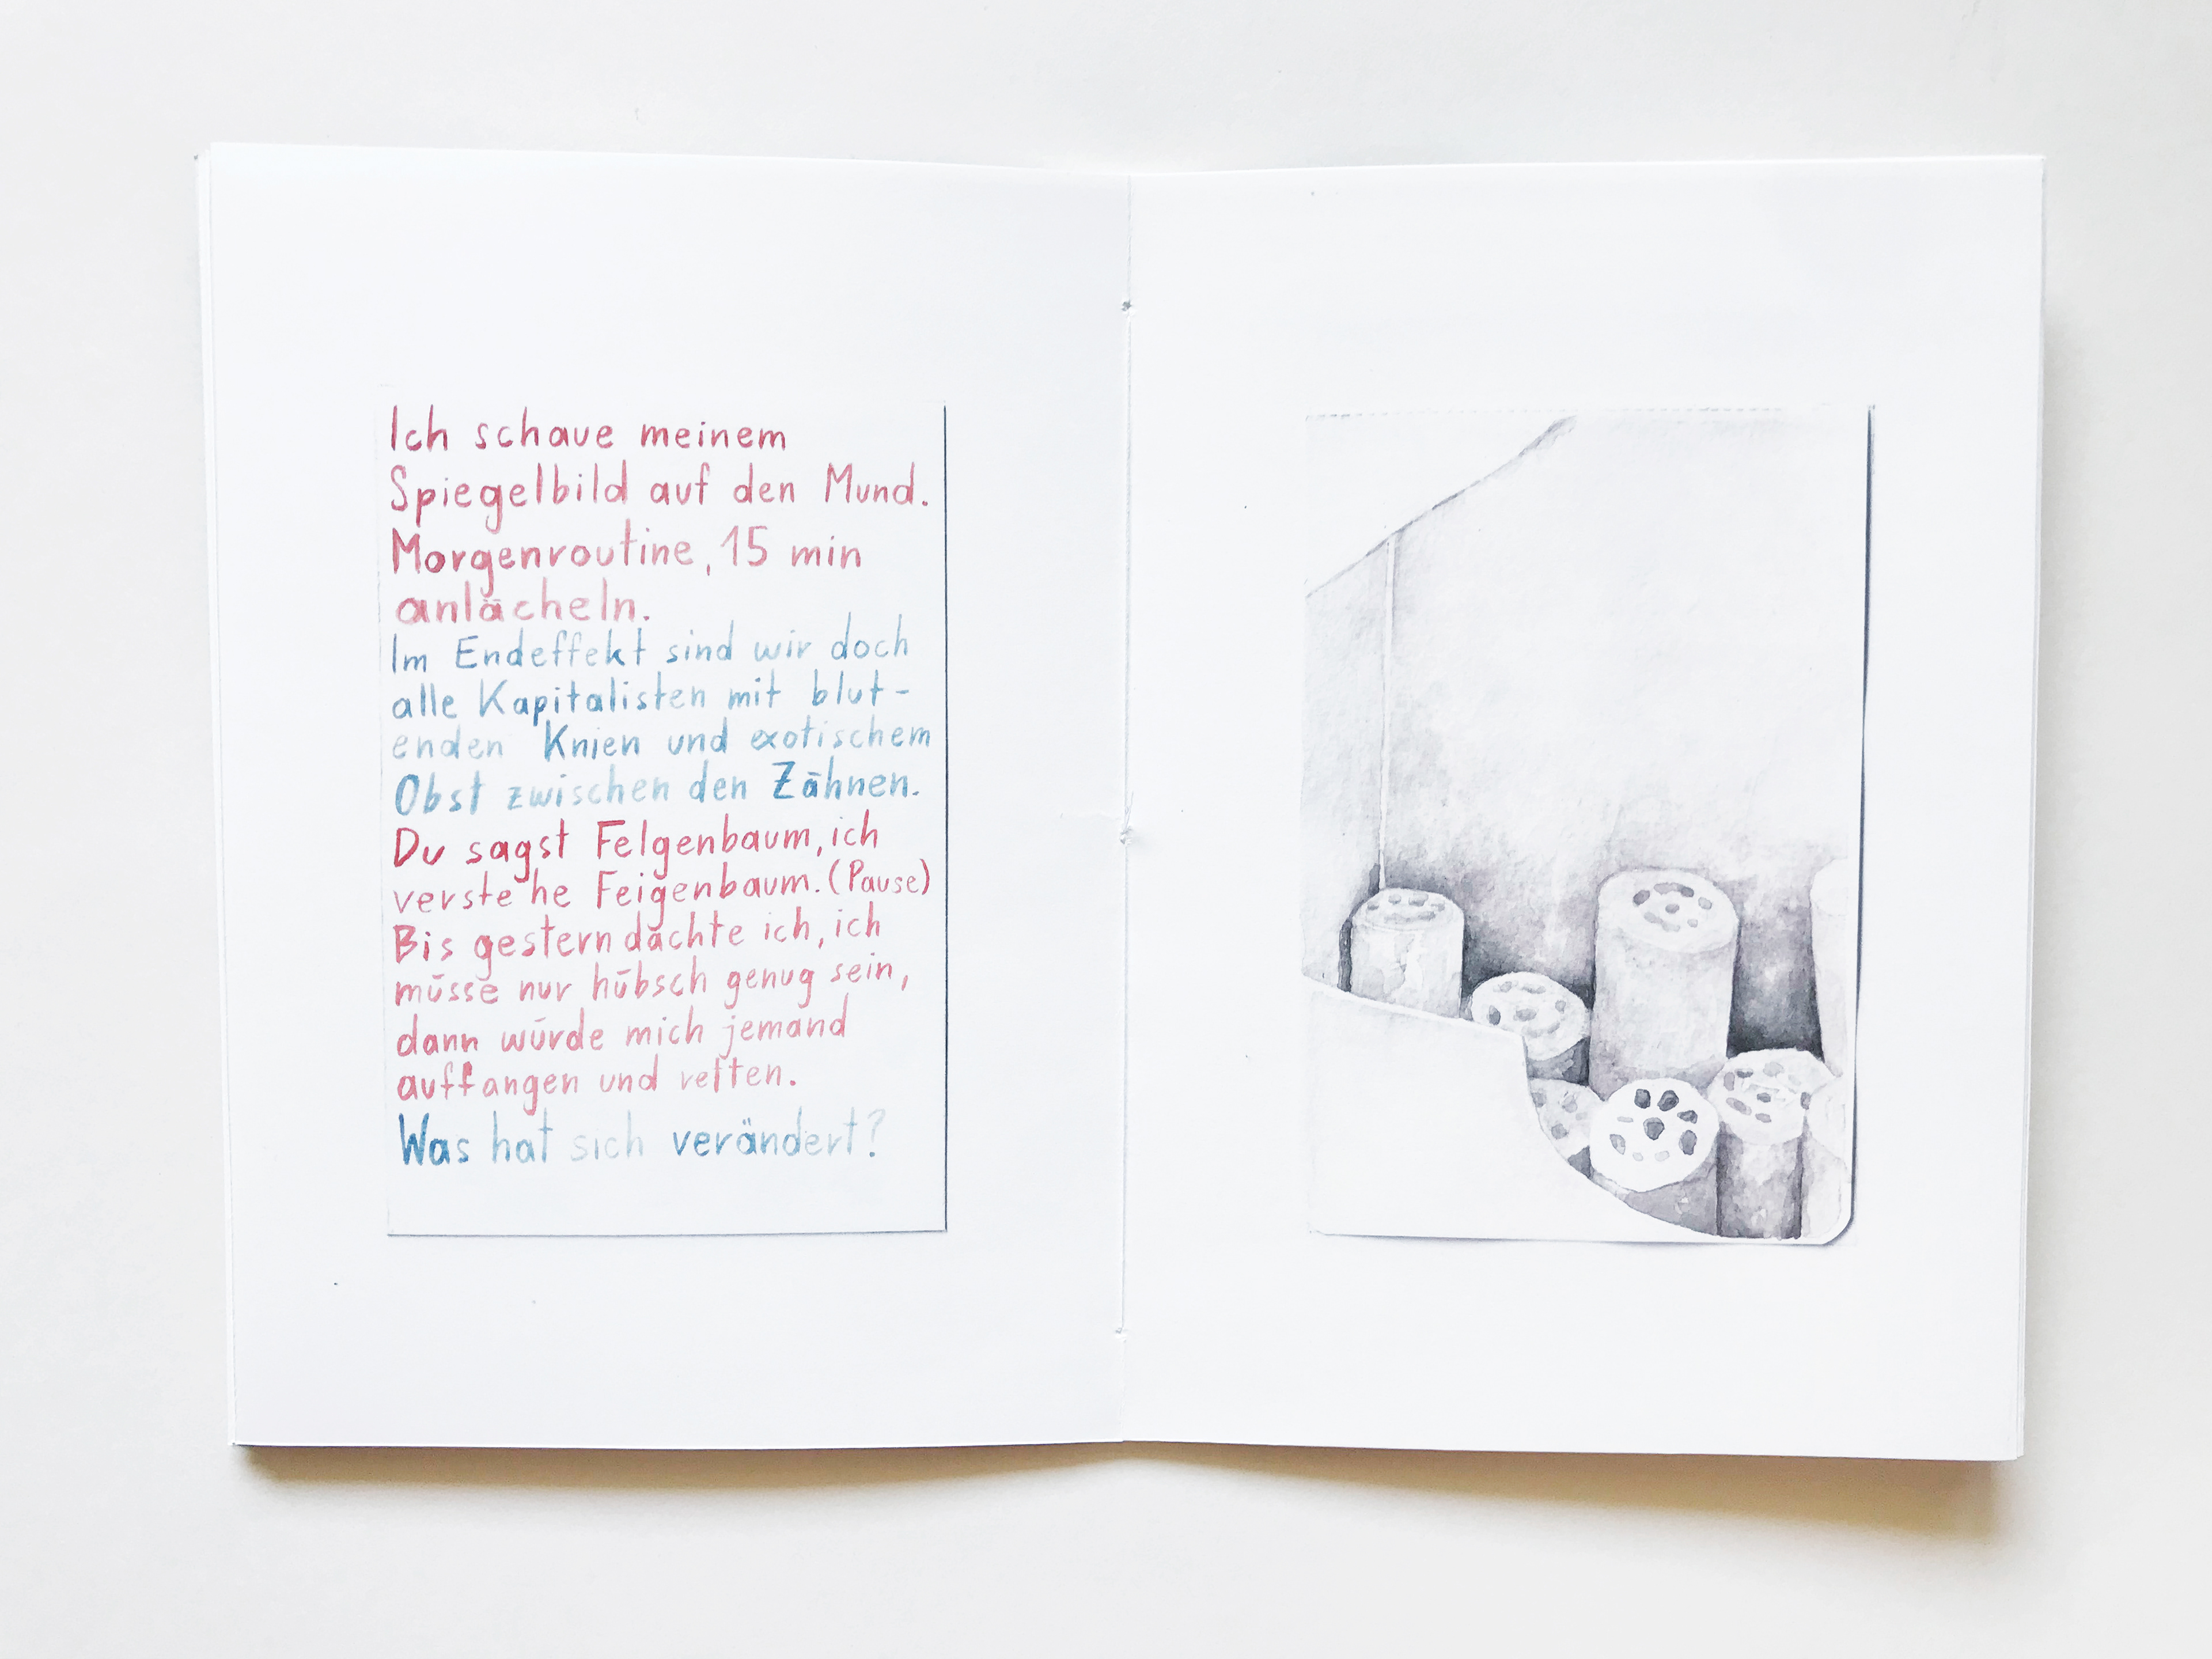 Ich schaue meinem
Spiegelbild auf den Mund.
Morgenroutine, 15 min
anlächeln.
Im Endeffekt sind wir doch
alle Kapitalisten mit blut-
enden Knien und exotischem
Obst zwischen den Zähnen.
Du sagst Felgenbaum, ich
verstehe Feigenbaum. (Pause)
Bis gestern dachte ich, ich
müsse nur hübsch genug sein,
dann würde mich jemand
auffangen und retten.
Was hat sich verändert?